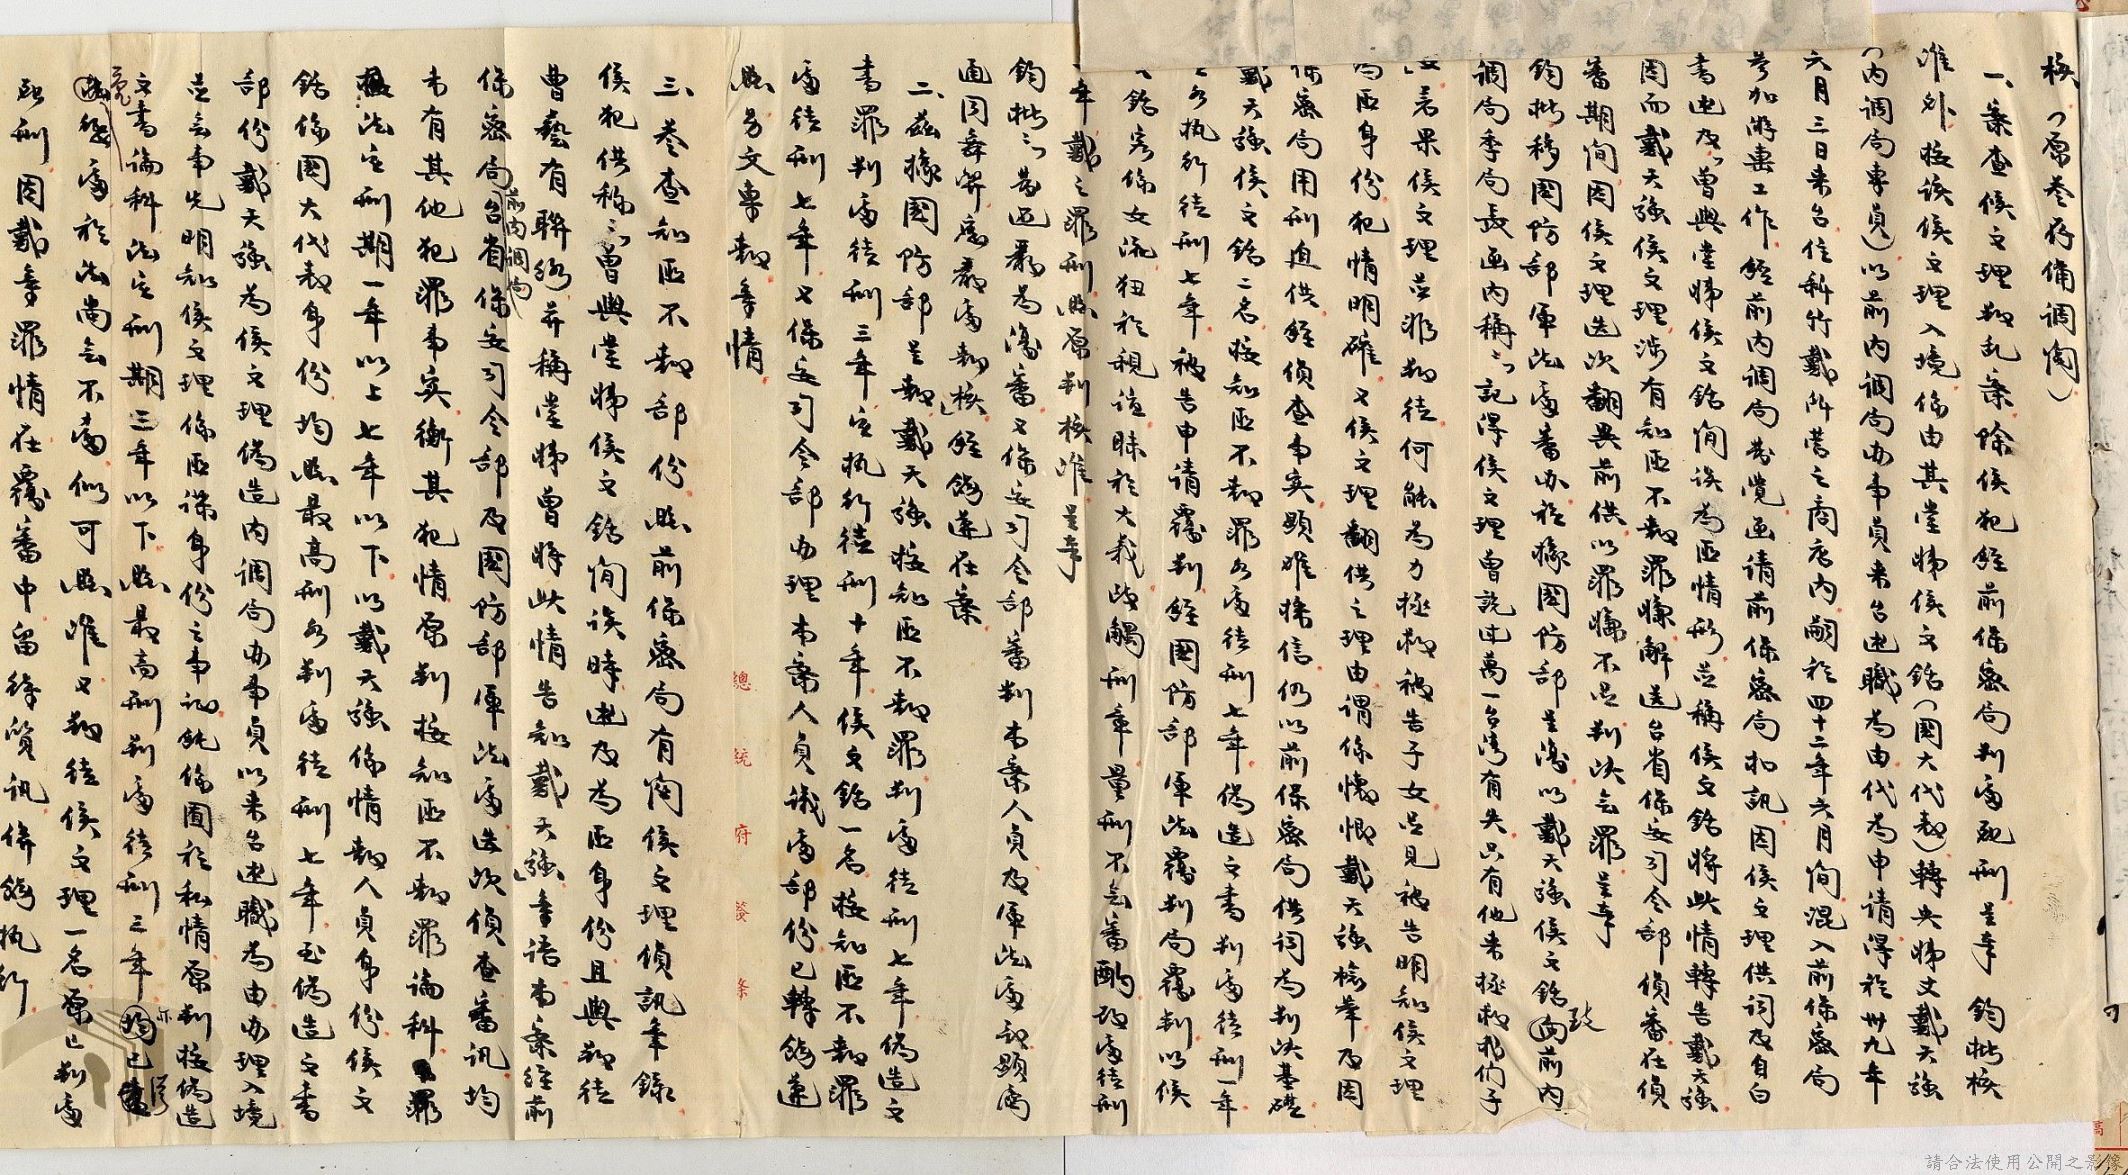 核（原卷存備調閱）
一、案查侯文理叛乱案除侯犯經前保密局判處死刑呈奉　鈞批核
准外接該侯文理入境係由其堂姊侯文銘（國大代表）轉央姊丈戴天強
（内調局專員）以前内調局办事員来台述職為由代為申请得於卅九年
六月三日来台住新竹戴所營之商店内嗣於四十二年六月間混入前保密局
參加游擊工作經前内調局發覚函请前保密局扣訊因侯文理供词及自白
書述及「曾與堂姊侯文銘間談為匪情形並稱侯文銘將此情轉告戴天強
因而戴天強侯文理涉有知匪不報罪嫌解送台省保安司令部偵審在偵
審期間因侯文理迭次翻異前供以罪嫌不足判決無罪呈奉
鈞批移國防部軍法處審办旋據國防部呈復以戴天強侯文銘致前内
調局季局長函内稱「記得侯文理曾說过萬一台湾有失只有他来拯救我們子
女」若果侯文理並非叛徒何能為力拯救被告子女足見被告明知侯文理
為匪身份犯情明確又侯文理翻供之理由謂係懷恨戴天強檢举及因
保密局用刑迫供經偵查事实顯难採信仍以前保密局供词為判決基礎
戴天強侯文銘二名按知匪不報罪各處徒刑七年偽造文書判處徒刑一年
各执行徒刑七年被告申请覆判經國防部軍法覆判局覆判以侯
文銘究係女流狃於親誼昧於大義致觸刑章量刑不無審酌改處徒刑
年戴之罪刑照原判核准呈奉
鈞批「發还覆為復審又保安司令部審判本案人員及軍法處
通同舞弊應嚴處報核」經飭遵在案
二、茲據國防部呈報戴天強按知匪不報罪判處徒刑七年偽造文
書罪判處徒刑三年定执行徒刑十年侯文銘一名按知匪不報罪
處徒刑七年又保安司令部办理本案人員議處部份已轉飭遵
照另文專報等情
三、卷查知匪不報部份照前保密局有関侯文理偵訊筆錄
侯犯供稱「曾與堂姊侯文銘間談時述及為匪身份且與叛徒
曹藝有聯絡并稱堂姊曾將此情告知戴天強」等語本案經前
保密局前内調局台省保安司令部及國防部軍法處迭次偵查審訊均
未有其他犯罪事实衡其犯情原判按知匪不報罪論科罪
法定刑期一年以上七年以下以戴天強係情報人員身份侯文
銘係國大代表身份均照最高刑各判處徒刑七年至偽造文書
部份戴天強為侯文理偽造内調局办事員以来台述職為由办理入境
並無事先明知侯文理係匪諜身份之事証純係囿於私情原判按偽造
文書論科法定刑期三年以下照最高刑判處徒刑三年均已
處於法尚無不當似可照准又叛徒侯文理一名原已判處
死刑因戴等罪情在覆審中留待質訊併飭执行
總統府簽條
請合法使用公開之影像